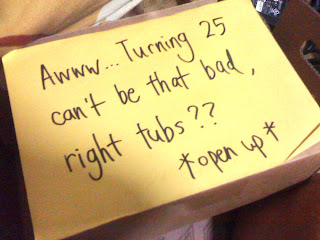 Awww...Turning 25
can't be that bad,
right tubs??
*open up*